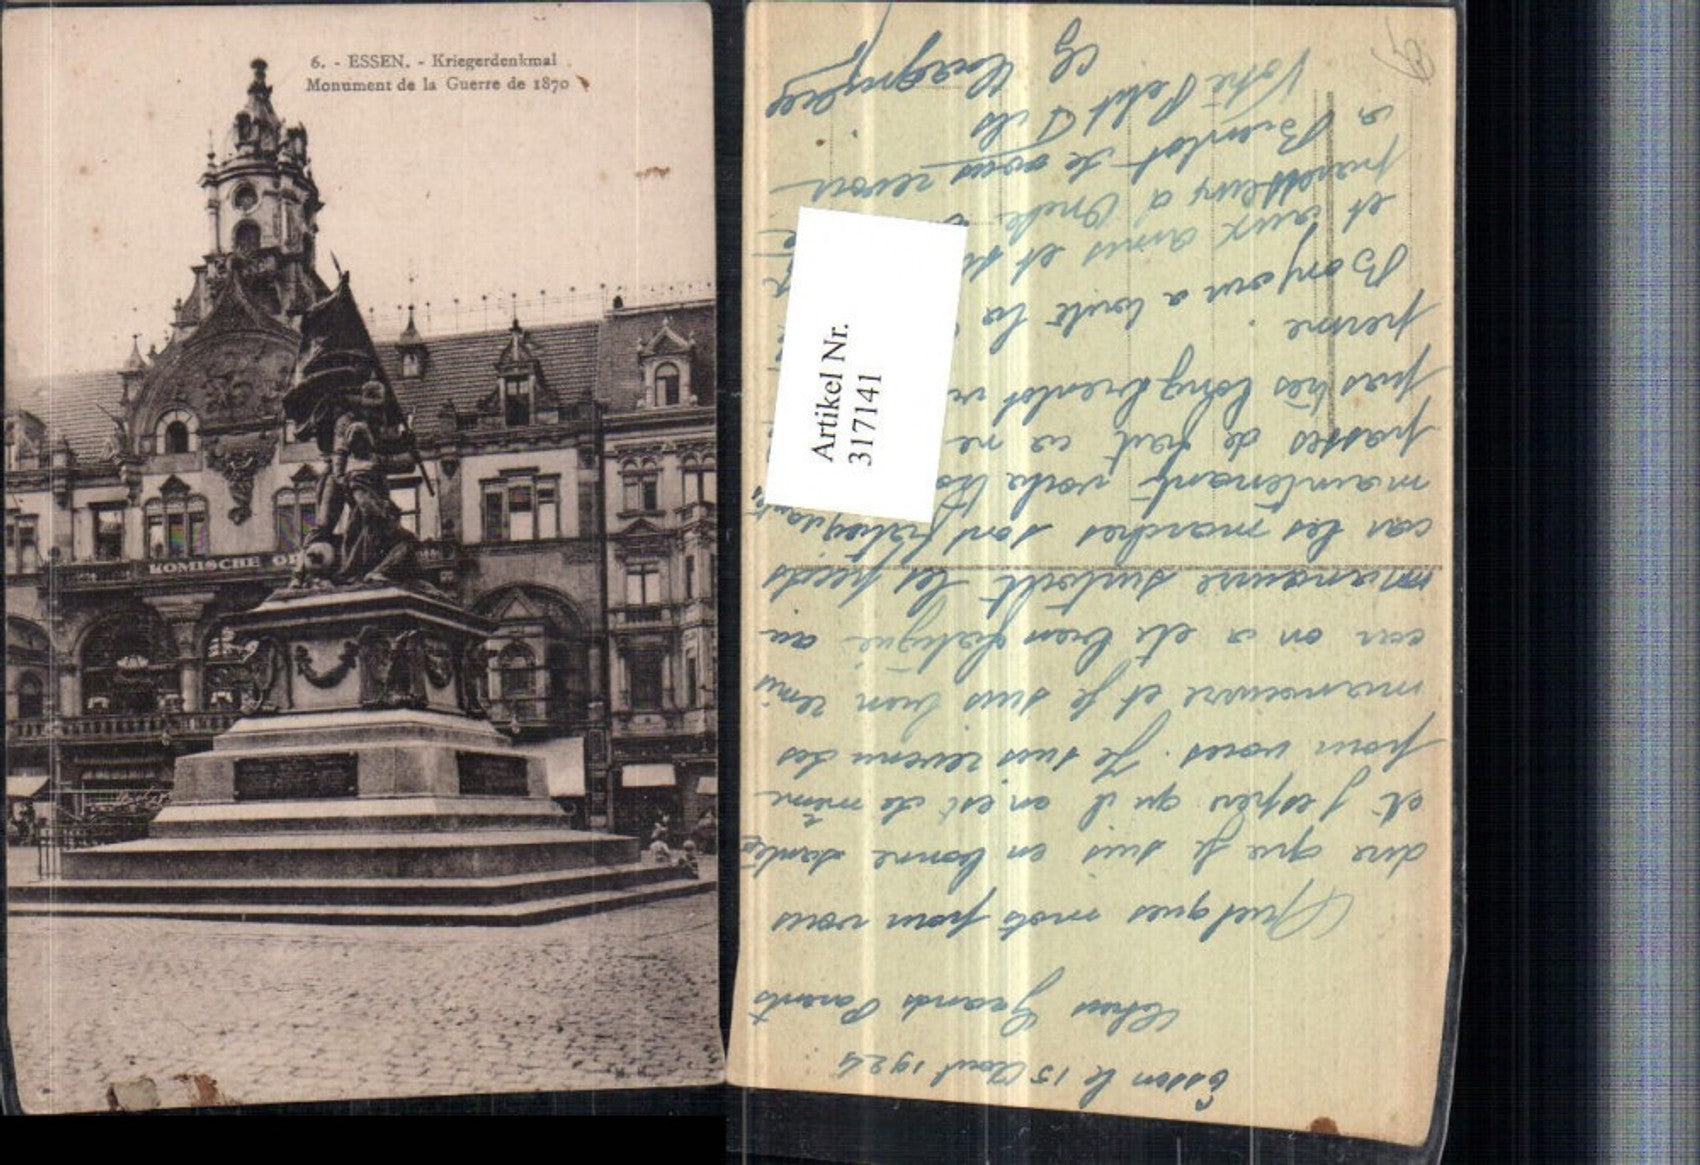 6. - ESSEN. - Kriegerdenkmal
Monument de la Guerre de 1870
KOMISCHE
Artikel Nr.
317141
Essen le 15 Aout 1924
Chers Grands Parents
Quelques mots pour vous
dire que je suis en bonne santée
et j'espère qu'il en est de même
pour vous. Je suis revenu des
manoeuvre et je suis bien remis
car on a eté bien fatigué au
manoeuvre surtout les pieds
car les marches sont fatiguante
maintenant voila
passes de fait ca ne
pas très long bientot
perme
Bonjour a toute la
et aux amis et
a Bientot de vous revoir
Votre Petit Fils